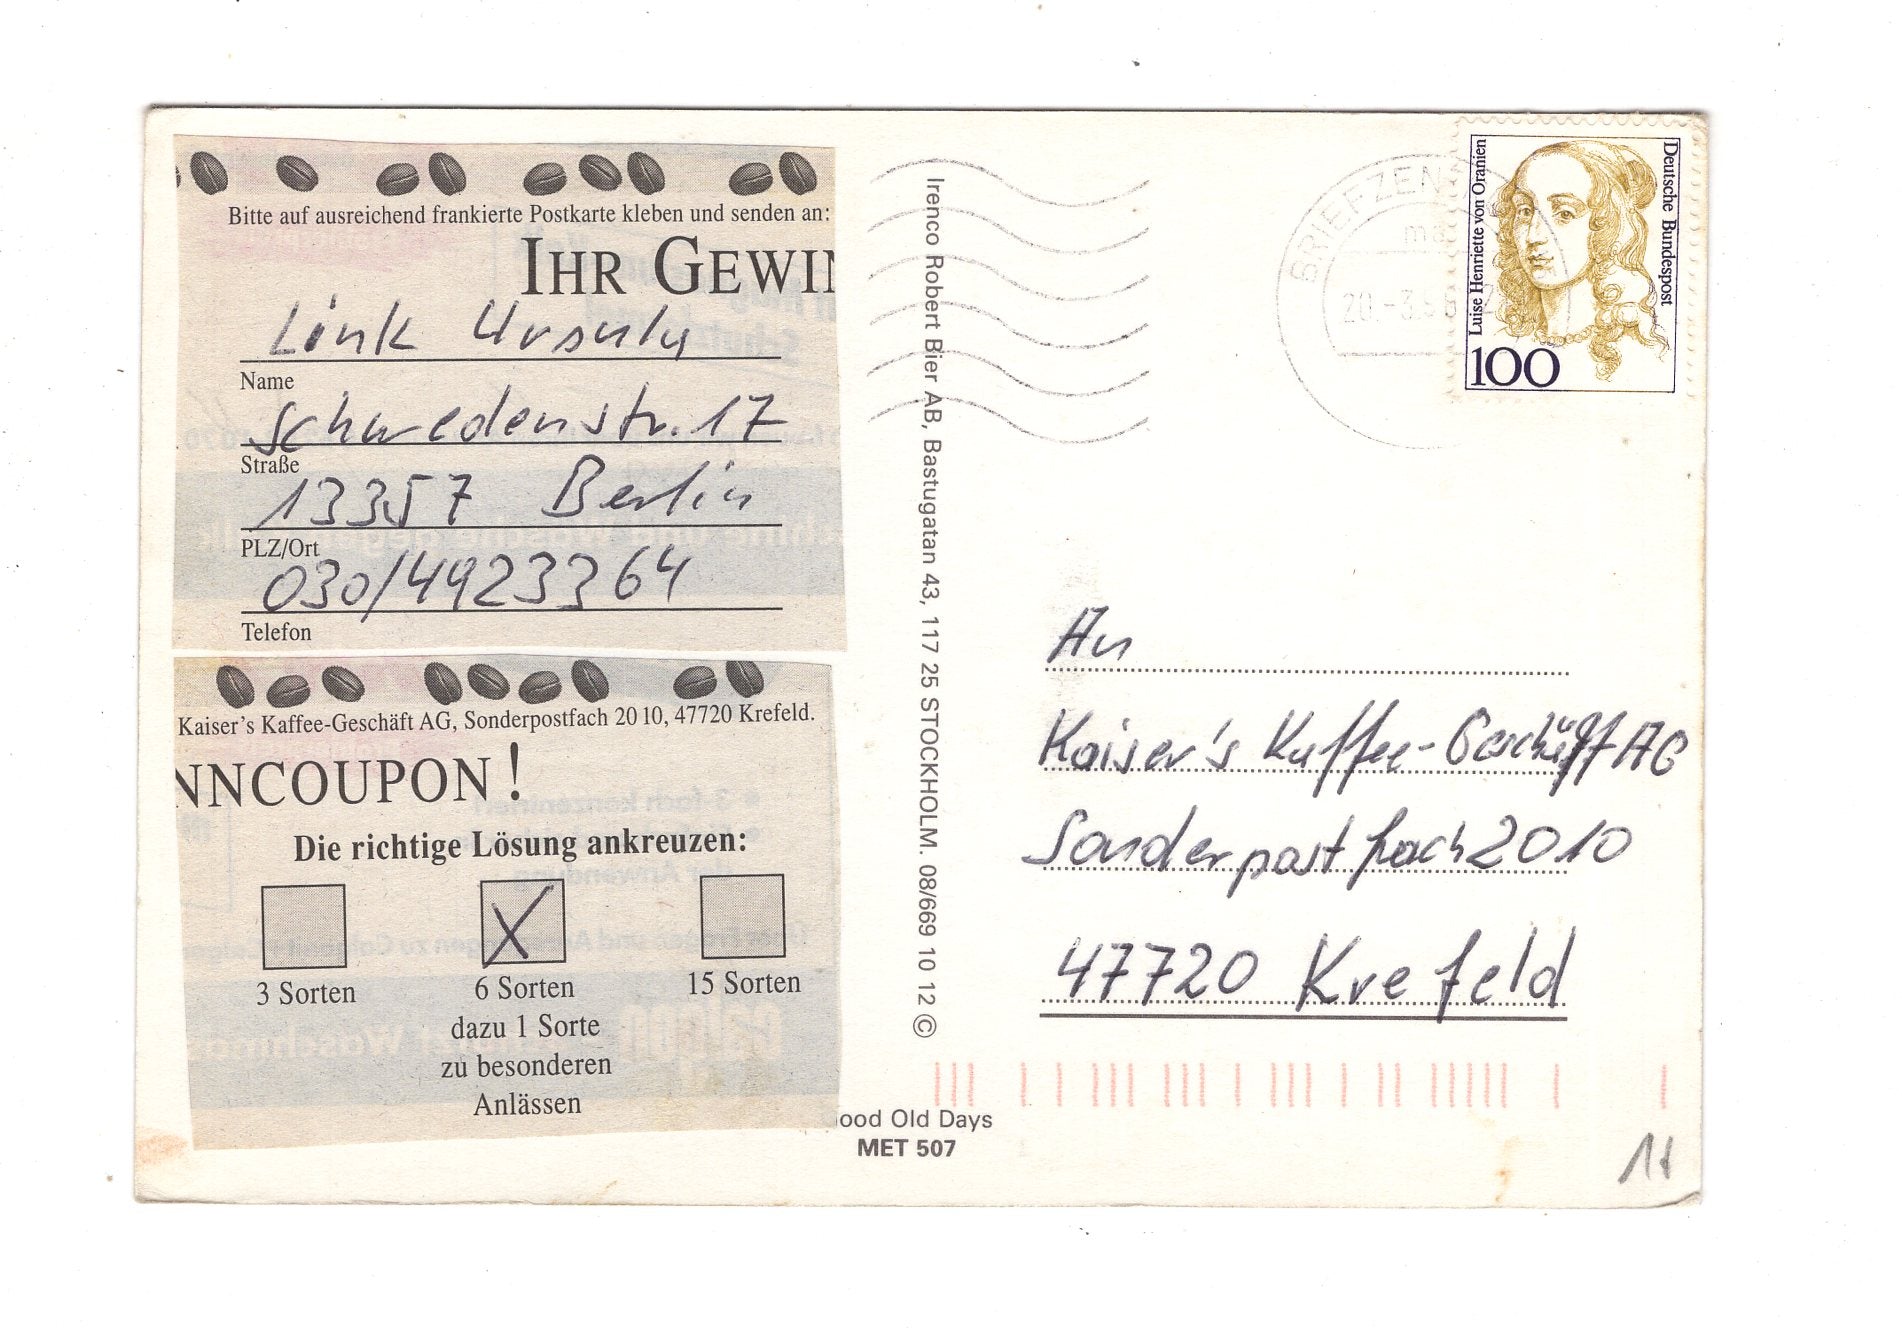 Bitte auf ausreichend frankierte Postkarte kleben und senden an:
IHR GEWIN
Link Ursula
Name
Schwedenstr. 17
Straße
13357 Berlin
PLZ/Ort
030/4923364
Telefon
Kaiser's Kaffee-Geschäft AG, Sonderpostfach 20 10, 47720 Krefeld.
NNCOUPON!
Die richtige Lösung ankreuzen:
X
3 Sorten 6 Sorten 15 Sorten
dazu 1 Sorte
zu besonderen
Anlässen
Irenco Robert Bier AB, Bastugatan 43, 117 25 STOCKHOLM. 08/669 10 12 ©
ood Old Days
MET 507
BRIEFZEN
20.-3.96
Luise Henriette von Oranien
Deutsche Bundespost
100
An
Kaiser's Kaffee-Geschäft AG
Sonderpostfach 2010
47720 Krefeld